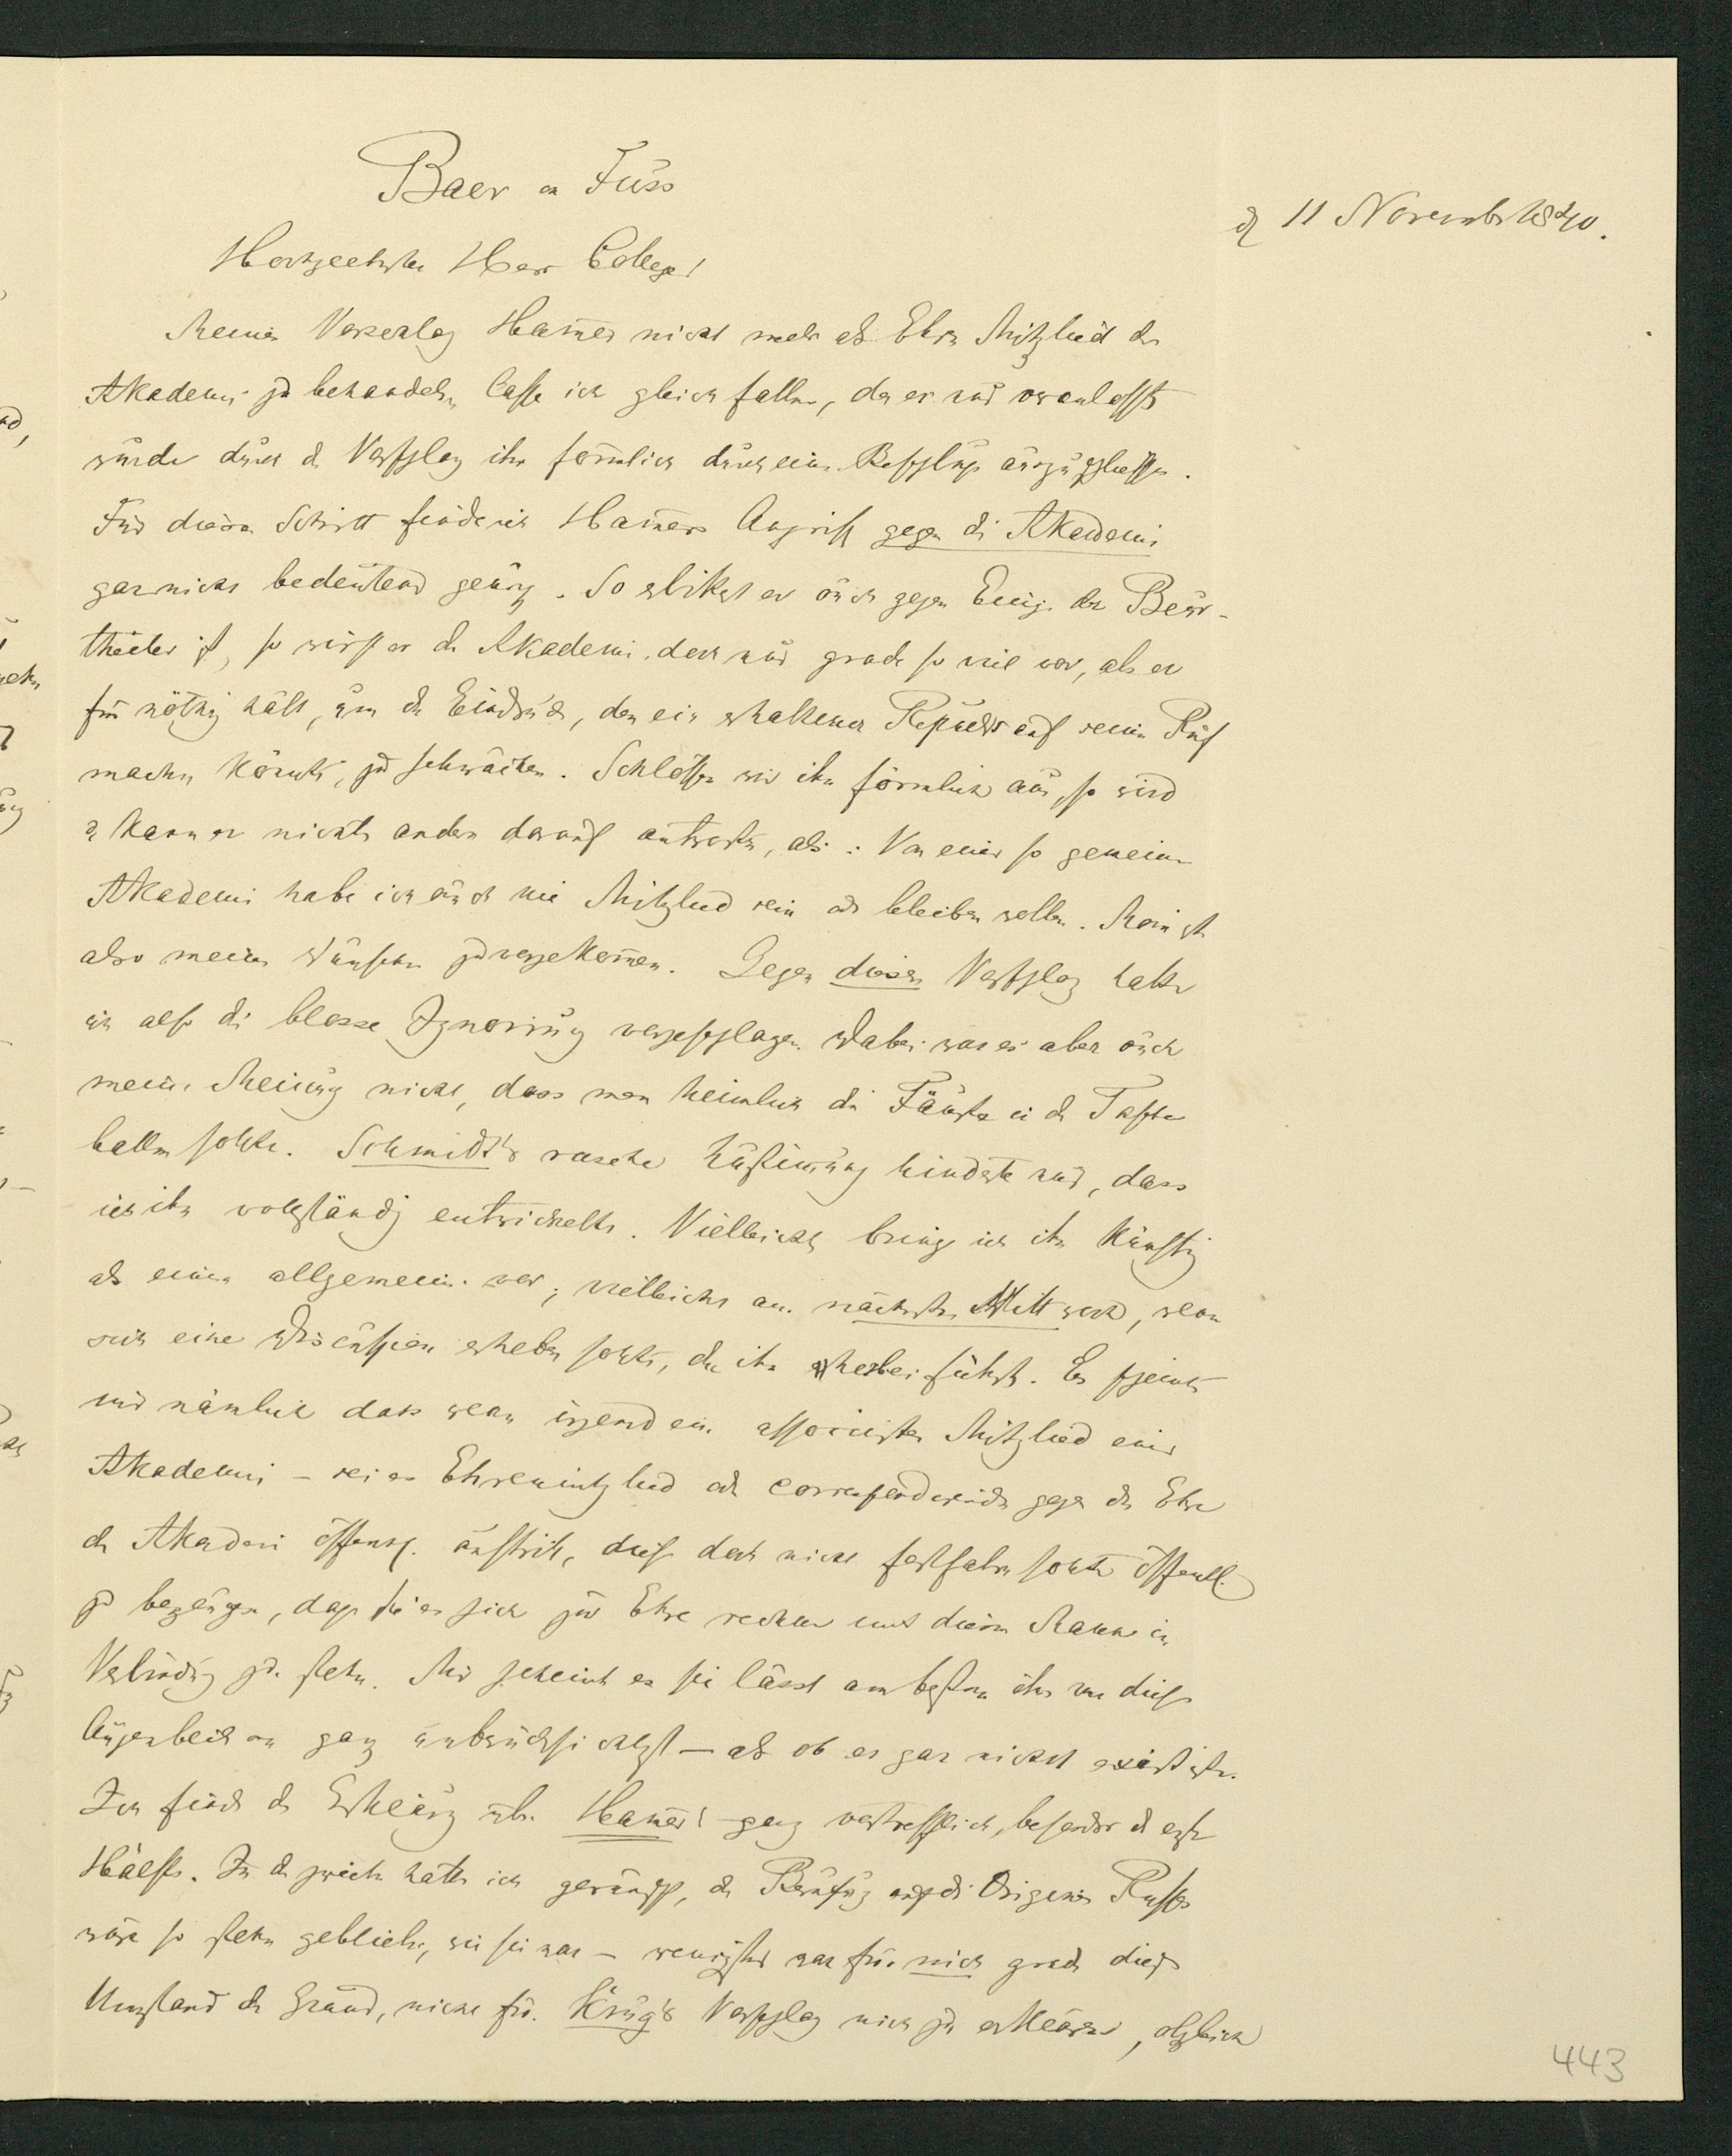 Baer an Fuss
d 11 Novembr 1840.
Hochgeehrter Herr College!
Meinen Vorschlag Hamer nicht mehr als Ehrn Mitglied der
Akademi zu behandeln, lasse ich gleich fallen, da er nur veranlasst
wurde durch d Vorschlag ihn förmlich durch eine Beschluss auszuschliessen.
Für diesen Schritt finde ich Hamers Angriff gegen di Akademi
gar nicht bedeutend genug. So erbittert er auch gegen Einige der Beur-
theiler ist, so wirft er d Akademi doch nur grade so viel vor, als er
für nöthig hält, um dn Eindruck, den ein erhaltener Refus auf seinen Ruf
machen könnte, zu schwächen. Schlössen wir ihn förmlich aus, so wird
u kann er nichts anders darauf antworten, als: Von einer so gemeinen
Akademi habe ich auch nie Mitglied sein od bleiben wollen. Man ist
also meinen Wünschen zuvorgekomen. Gegen diesen Vorschlag hatte
ich also di blosse Ignorirung vorgeschlagen. Dabei war es aber auch
meine Meinung nicht, dass man heimlich di Fäuste in d Tasche
ballen sollte. Schmidt's rasche Zustimung hinderte nur, dass
ich ihn vollständig entwickelte. Vielleicht bringe ich ihn künftig
als einen allgemeinen vor; vielleicht am nächsten Mittwoch, wenn
sich eine Discussion erheben sollte, die ihn herbeiführt. Es scheint
mir nämlich dass wenn irgend ein associirtes Mitglied einer
Akademi – sei es Ehrenmitglied od correspondirendes gegen die Ehre
dr Akademi öffentl. auftritt, diese doch nicht fortfahren sollte öffentl.
zu bezeugen, dass sie es sich zur Ehre rechne mit diesem Manne in
Verbindung zu stehn. Mir scheint es sie lässt am besten ihn von diesem
Augenblick an ganz unberücksichtigt – als ob er gar nicht existirte.
Ich finde d Erklärung üb. Hamer ganz vortrefflich, besonders d erste
Hälfte. In d zweiten hätte ich gewünscht, d Berufung auf di Origenes Russes
wäre so stehn geblieben, wie sie war – wenigstens war für mich grade dieser
Umstand dr Grund, nicht für Krug's Vorschlag mich zu erklären, obgleich
443